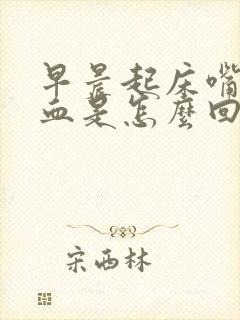 早晨起床嘴
血是怎麼回
宋西林